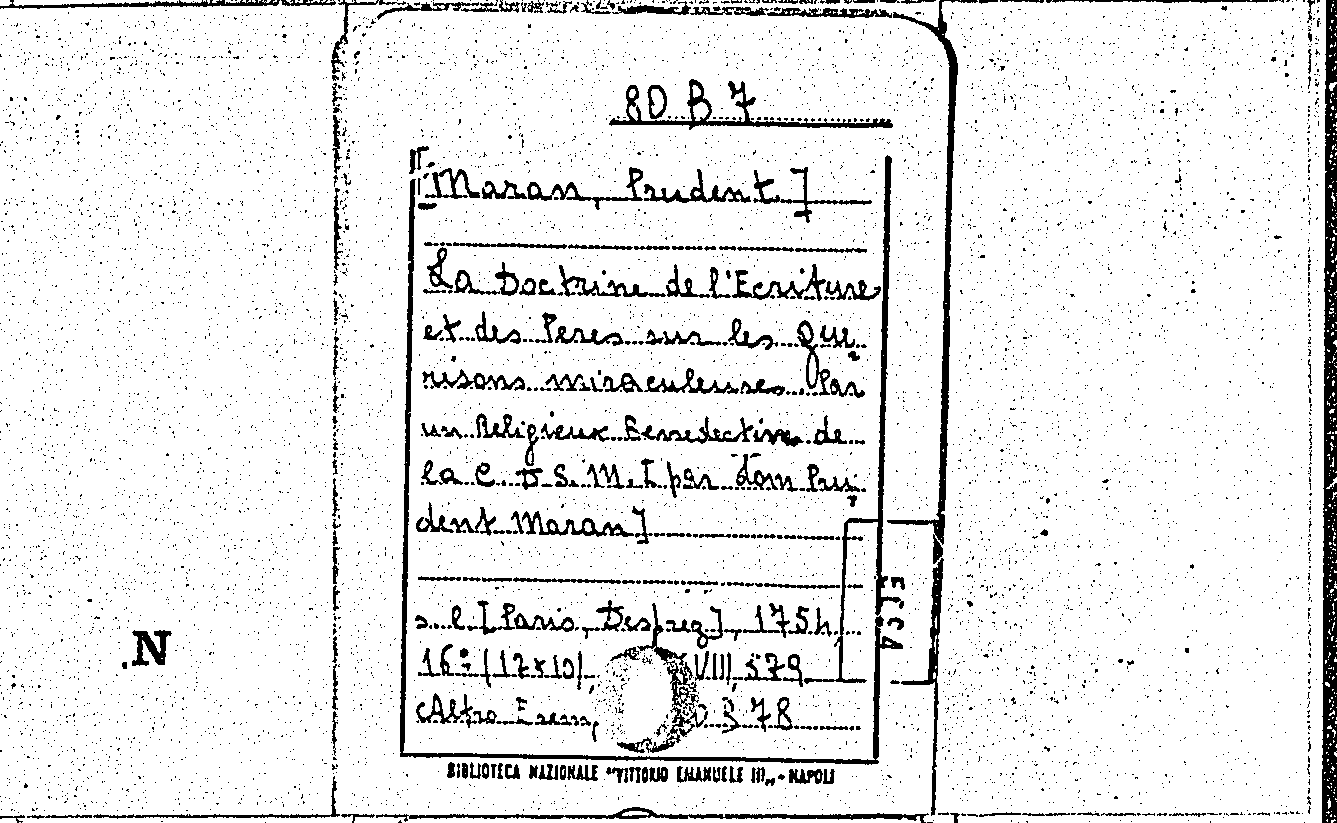 80 B 7
[Maran, Prudent.]
La Doctrine de l'Ecriture
et des Peres sur les gue-
risons miraculeuses. Par
un Religieux Benedectine de
la C. D. S. M. [par dom Pru-
dent Maran]
s. l. [Paris, Desprez], 1754,
16° (17x10), VIII, 579
Altro Esem, B 78
BIBLIOTECA NAZIONALE "VITTORIO EMANUELE III" - NAPOLI
.N